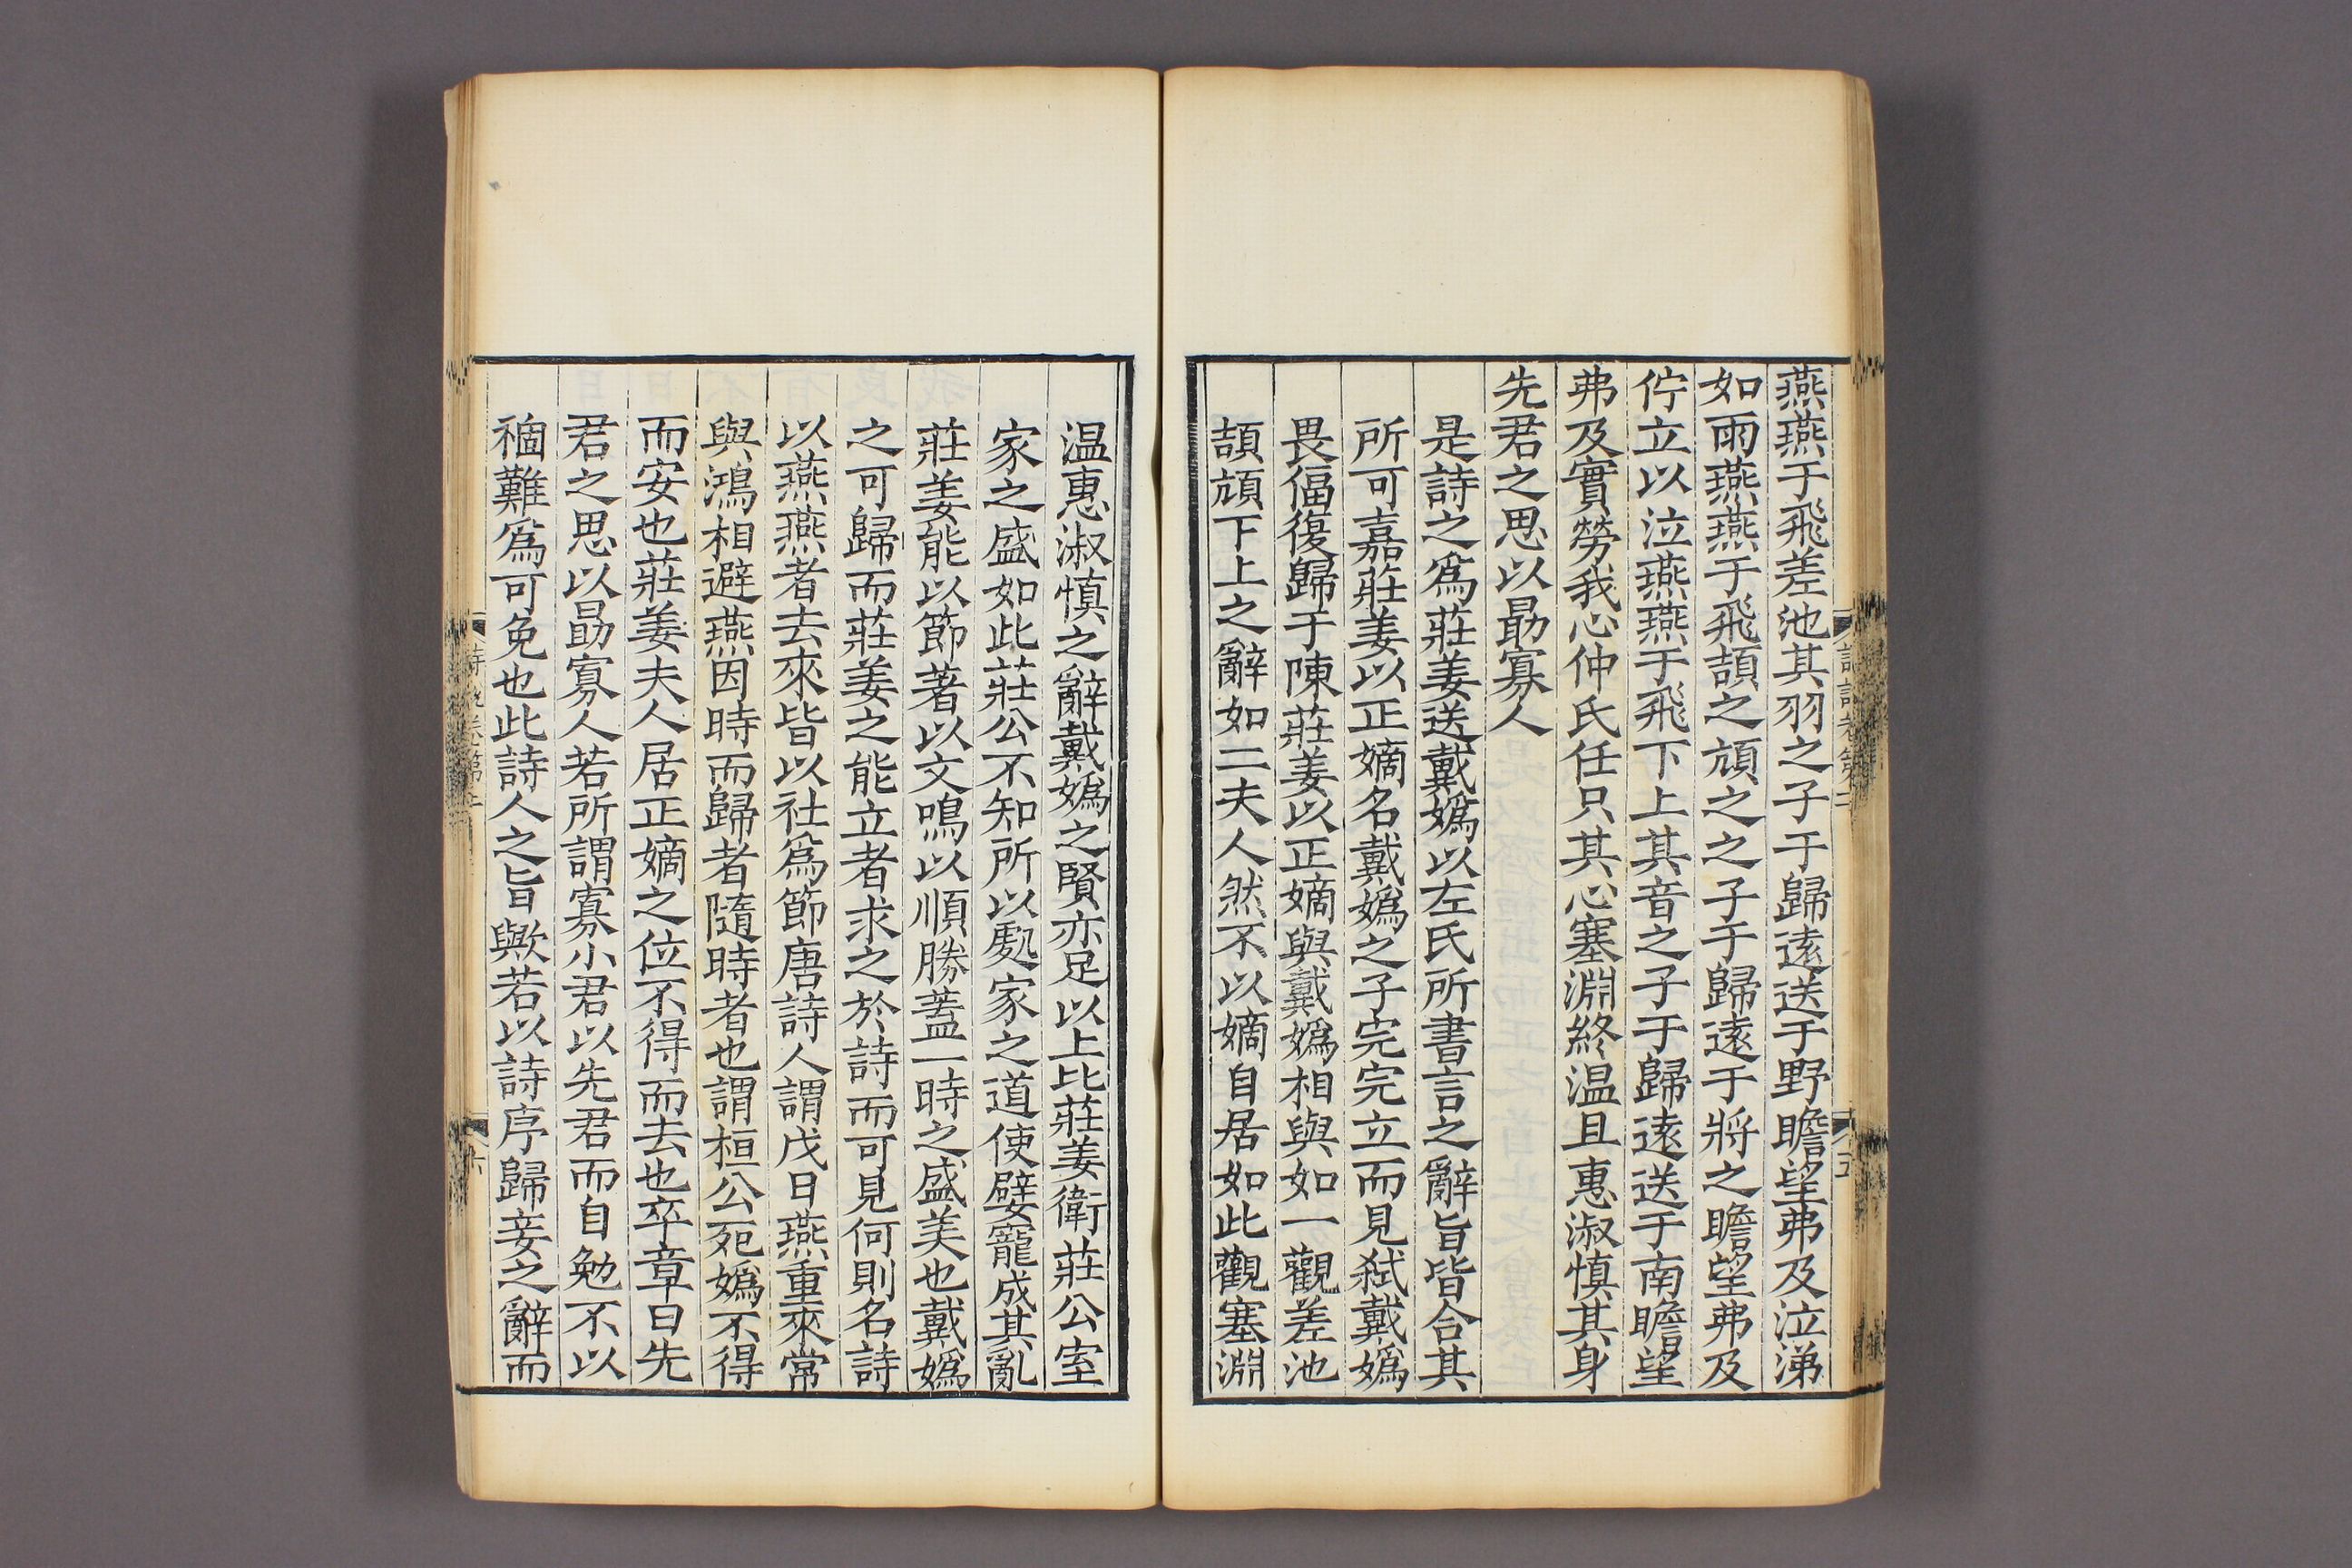 燕燕于飛差池其羽之子于歸遠送于野瞻望弗及泣涕
如雨燕燕于飛頡之頏之之子于歸遠于將之瞻望弗及
佇立以泣燕燕于飛下上其音之子于歸遠送于南瞻望
弗及實勞我心仲氏任只其心塞淵終温且惠淑慎其身
先君之思以勗寡人
是詩之爲莊姜送戴嬀以左氏所書言之辭旨皆合其
所可嘉莊姜以正嫡名戴嬀之子完完立而見弑戴嬀
畏偪復歸于陳莊姜以正嫡與戴嬀相與如一觀差池
頡頏下上之辭如二夫人然不以嫡自居如此觀塞淵
温惠淑慎之辭戴嬀之賢亦足以上比莊姜衛莊公室
家之盛如此莊公不知所以處家之道使嬖寵成其亂
莊姜能以節著以文鳴以順勝蓋一時之盛美也戴嬀
之可歸而莊姜之能立者求之於詩而可見何則名詩
以燕燕者去來皆以社爲節唐詩人謂戊日燕重來常
與鴻相避燕因時而歸者隨時者也謂桓公死嬀不得
而安也莊姜夫人居正嫡之位不得而去也卒章曰先
君之思以勗寡人若所謂寡小君以先君而自勉不以
禍難爲可免也此詩人之旨歟若以詩序歸妾之辭而
詩說卷第二
五
六